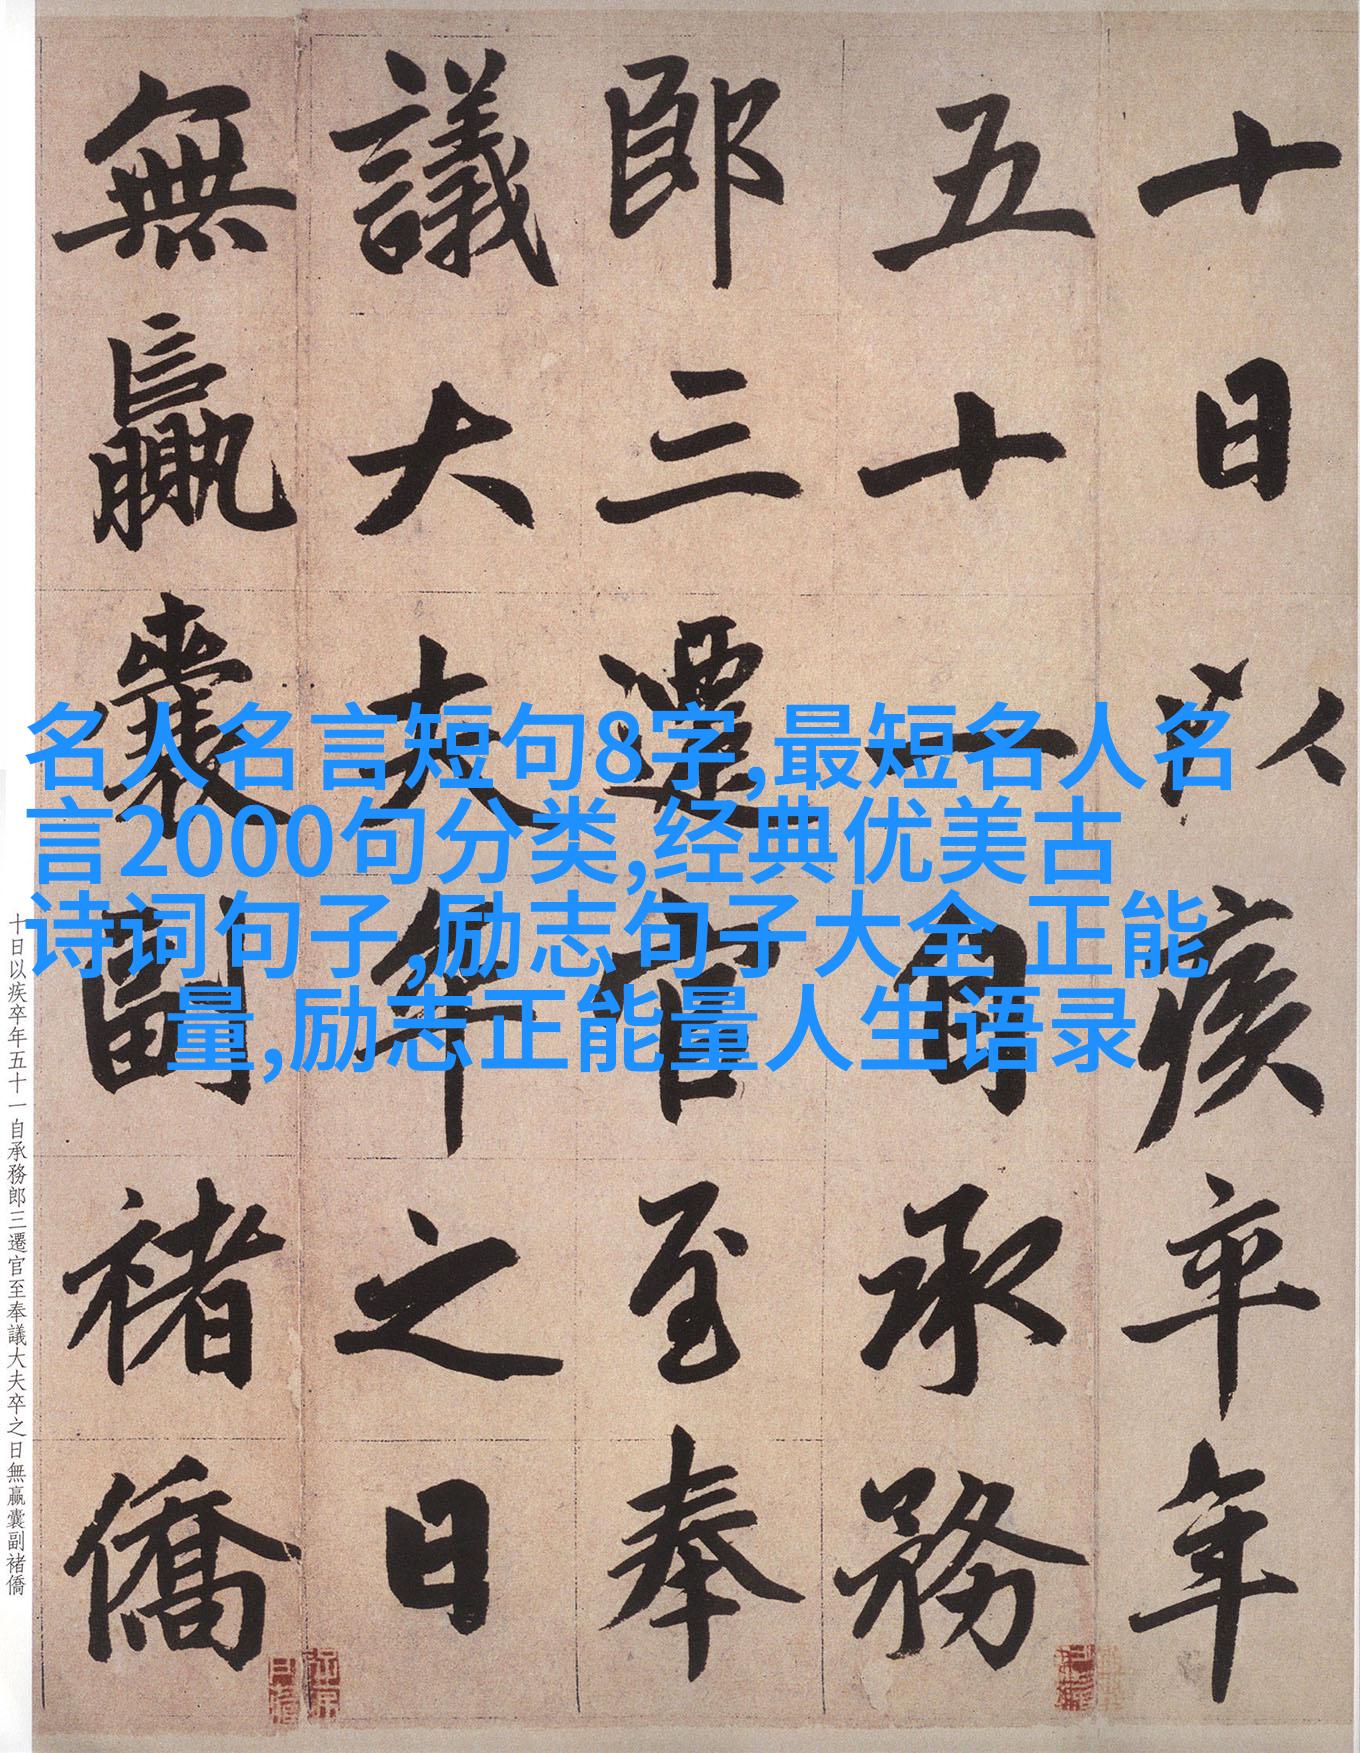 十日以疾卒年
五十一自承務
郎三遷官至奉
議大夫卒之日
無贏囊副褚僑
名人名言短句8字,最短名人名
言2000句分类,经典优美古
诗词句子,励志句子大全 正能
量,励志正能量人生语录
十日以疾卒年五十一自承務郎三遷官至奉議大夫卒之日無贏囊副褚僑